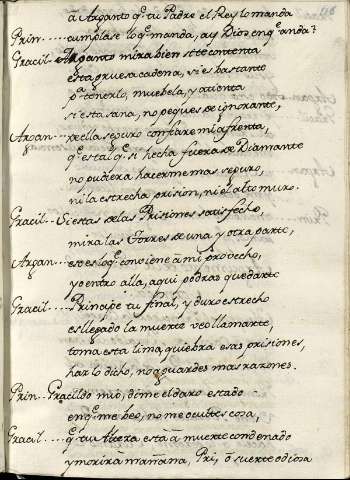 a Arganto q̃ tu Padre el Rey lo manda
Prin.....cumplase lo q̃ manda, ay Dios en q̃ anda?
Gracil...Arganto mira bien si te contenta
esta gruesa cadena, si es bastante
pª tenerlo, muebela, y atienta
si esta sana, no peques de ignorante,
Argan...della seguro confiare mi afrenta,
q̃ es tal q̃ si hecha fuera de Diamante
no pudiera hacerme mas seguro,
ni la estrecha prision, ni el alto muro.
Gracil...Si estas de las Prisiones satisfecho,
mira las Torres de una y otra parte,
Argan...eso es lo q̃ conviene a mi provecho,
yo entro alla, aqui podras quedarte
Gracil...Principe tu final, y duro estrecho
es llegado la muerte veo llamarte,
toma esta lima, quiebra esas prisiones,
haz lo dicho, no aguardes mas razones.
Prin..Gracildo mio, dime el daro estado
en q̃ me beo, no me ocultes cosa,
Gracil....q̃ tu Alteza está à muerte condenado
y morirà mañana, Pri, ò suerte odiosa